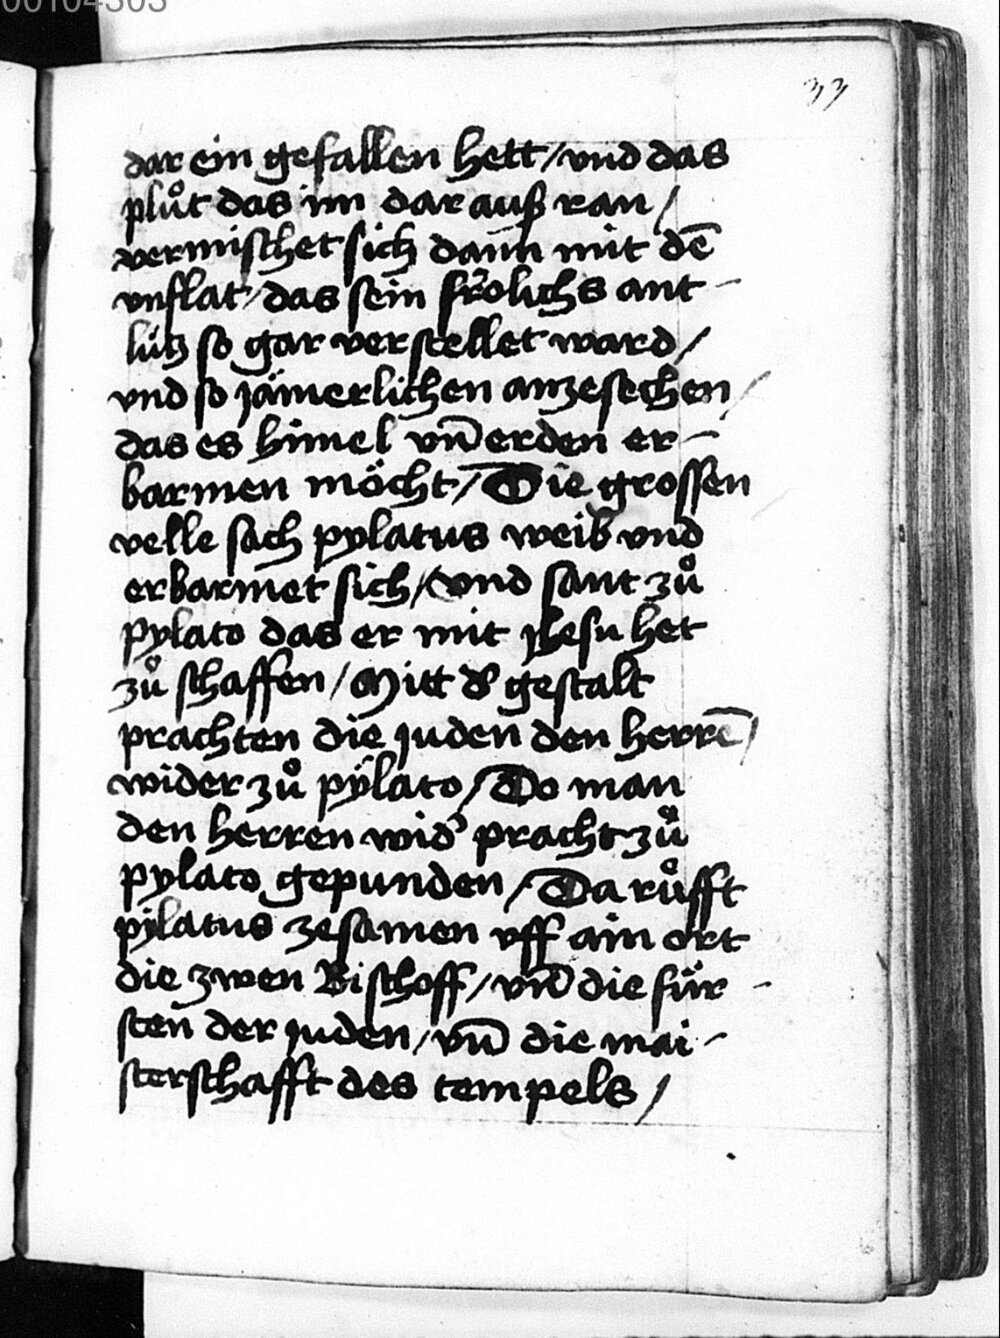 00104303
33
dar ein gefallen hett / vnd das
plůt das im dar auß ran /
vermischet sich dann mit dē
vnflat / das sein frölichs ant-
lütz so gar verstellet ward /
vnd so jämerlichen anzesechen /
das es himel vn̄ erden er-
barmen möcht / Die grossen
velle sach pylatus weib vnd
erbarmet sich / vnd sant zů
pylato das er mit Jhesu het
zů schaffen / Mitt d' gestalt
prachten die juden den herrē /
wider zů pÿlato / Do man
den herren wid' pracht zů
pylato gepunden / Da růfft
pÿlatus zesamen vff ain ort
die zwen Bischoff / vn̄ die für-
sten der juden / vn̄ die mai-
sterschafft des tempels /